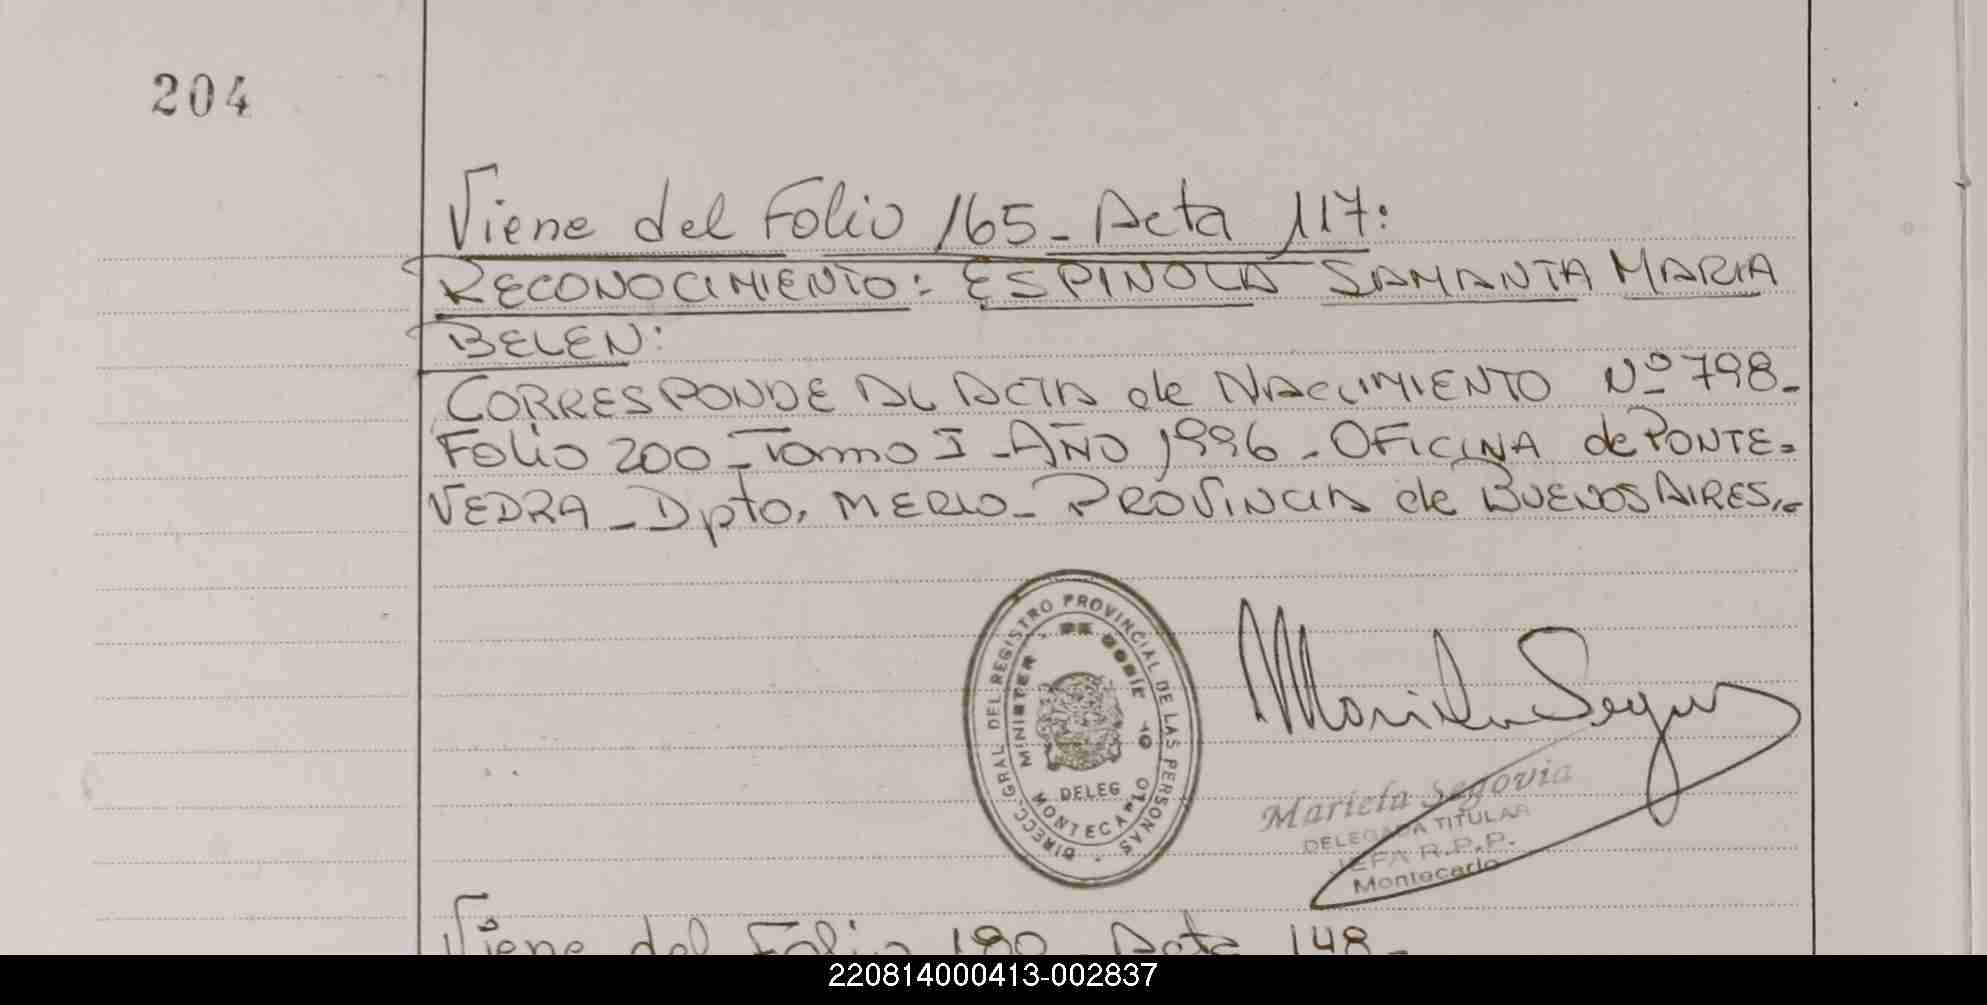 204
Viene del Folio 165 - Acta 117:
RECONOCIMIENTO: ESPINOLA SAMANTA MARIA
BELEN:
CORRESPONDE AL ACTA de NACIMIENTO Nº 798-
Folio 200 - Tomo I - AÑO 1996 - OFICINA de PONTE=
VEDRA - Dpto. MERLO - PROVINCIA de BUENOS AIRES.-
DIRECC. GRAL DEL REGISTRO PROVINCIAL DE LAS PERSONAS
MINISTER DE GOBIE
DELEG
MONTECARLO
Mariela Segovia
Mariela Segovia
DELEGADA TITULAR
JEFA R.P.P.
Montecarlo
Viene del Folio 190 - Acta 148 -
220814000413-002837